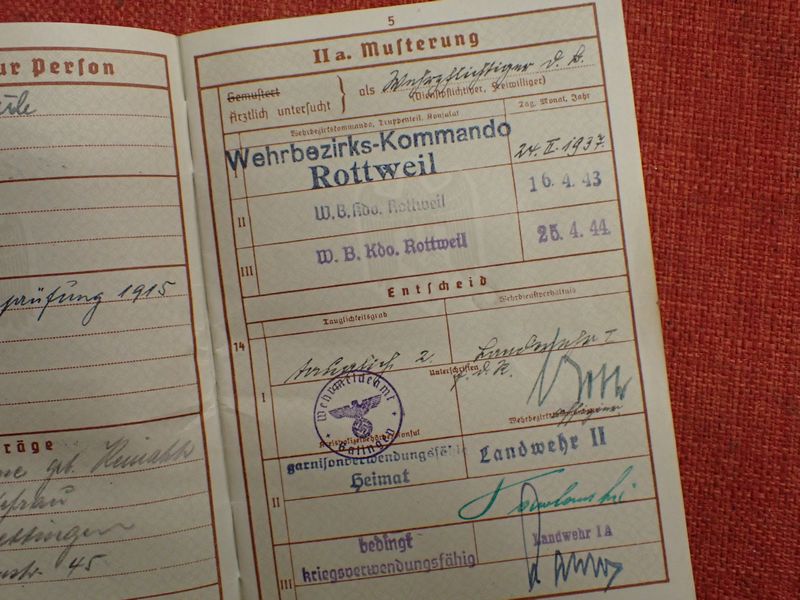 ur Person
prüfung 1915
räge
geb.
45
5
IIa. Musterung
Gemustert
Ärztlich untersucht } als Wehrpflichtiger d. B.
(Dienstpflichtiger, Freiwilliger)
Wehrbezirkskommando, Truppenteil, Konsulat
Tag, Monat, Jahr
I
Wehrbezirks-Kommando
Rottweil
24. II. 1937
II
W.B.Kdo. Rottweil
16. 4. 43
III
W. B. Kdo. Rottweil
25. 4. 44.
Entscheid
Tauglichkeitsgrad
Wehrdienstverhältnis
14
I
tauglich 2.
Landwehr I
Unterschriften
Wehrmeldeamt
Balingen
Kreispolizeibehörde, Konsul
II
garnisonverwendungsfähig
Heimat
Landwehr II
III
bedingt
kriegsverwendungsfähig
Landwehr IA